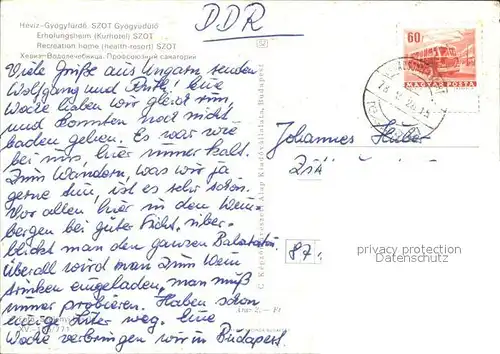 DDR
Hévíz-Gyógyfürdő. SZOT Gyógyüdülő
Erholungsheim (Kurhotel) SZOT
Recreation home (health-resort) SZOT
Хевиз-Водолечебница. Профсоюзный санаторий
60f
MAGYAR POSTA
Viele Grüße aus Ungarn senden
Wolfgang und Ruth! Eine
Woche haben wir gleich rum,
und konnten noch nicht
baden gehen. Es war wie
bei uns, hier immer kalt.
Zum Wandern, was wir ja
gerne tun, ist es sehr schön.
Vor allen hier in den Wein-
bergen bei guter Sicht, über-
blickt man den ganzen Balaton.
Überall wird man zum Wein
trinken eingeladen, man muß
immer probieren. Haben schon
einige Liter weg. Eine
Woche verbringen wir in Budapest.
Johannes Huber
87.
C Képzőművészeti Alap Kiadóvállalata, Budapest
Ára: 2,— Ft
privacy protection
Datenschutz